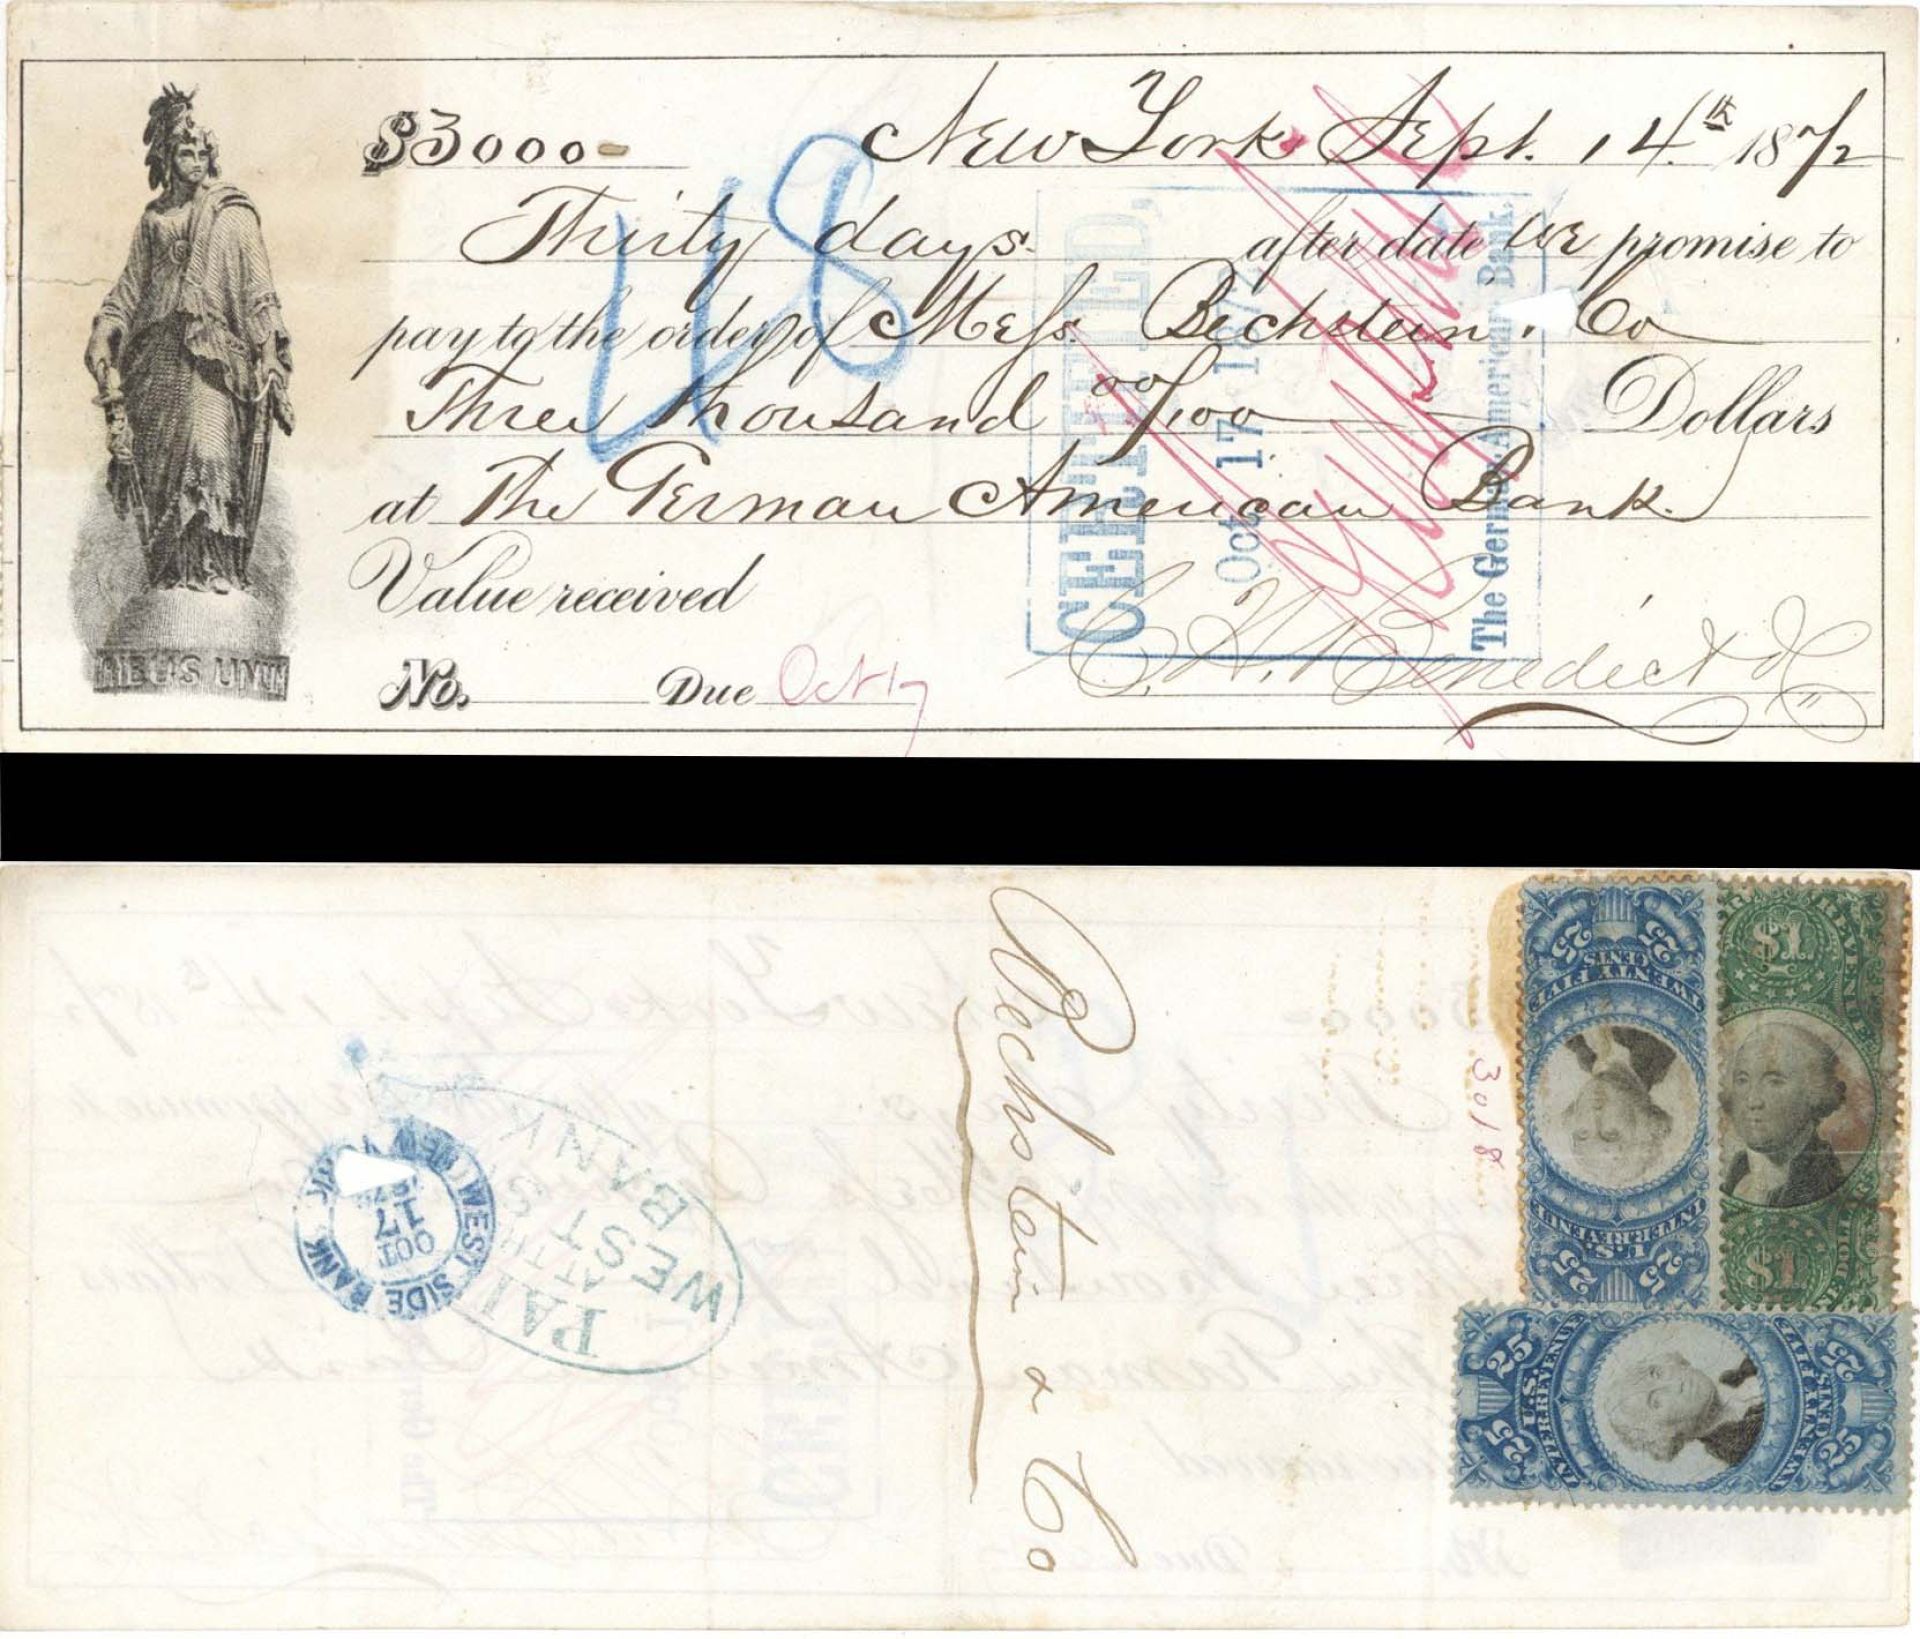 $3000- New York Sept. 14th 1872
Thirty days after date We promise to
pay to the order of Mess. Bechstein & Co
Three thousand 00/100 Dollars
at The German American Bank.
Value received
No. Due Oct 17
C. H. Benedict & Co
48
CERTIFIED,
Oct 17 187
The German American Bank.
Bechstein & Co
3018
PAID
AT THE
WEST SIDE
BANK
WEST SIDE BANK
NEW YORK
OCT
17
25 25
TWENTY FIVE
CENTS
U.S.
INTER.REVENUE
25 25
INTER. REVENUE
$1
$1
25 25
U.S.
INTER.REVENUE
TWENTY FIVE
CENTS
25 25